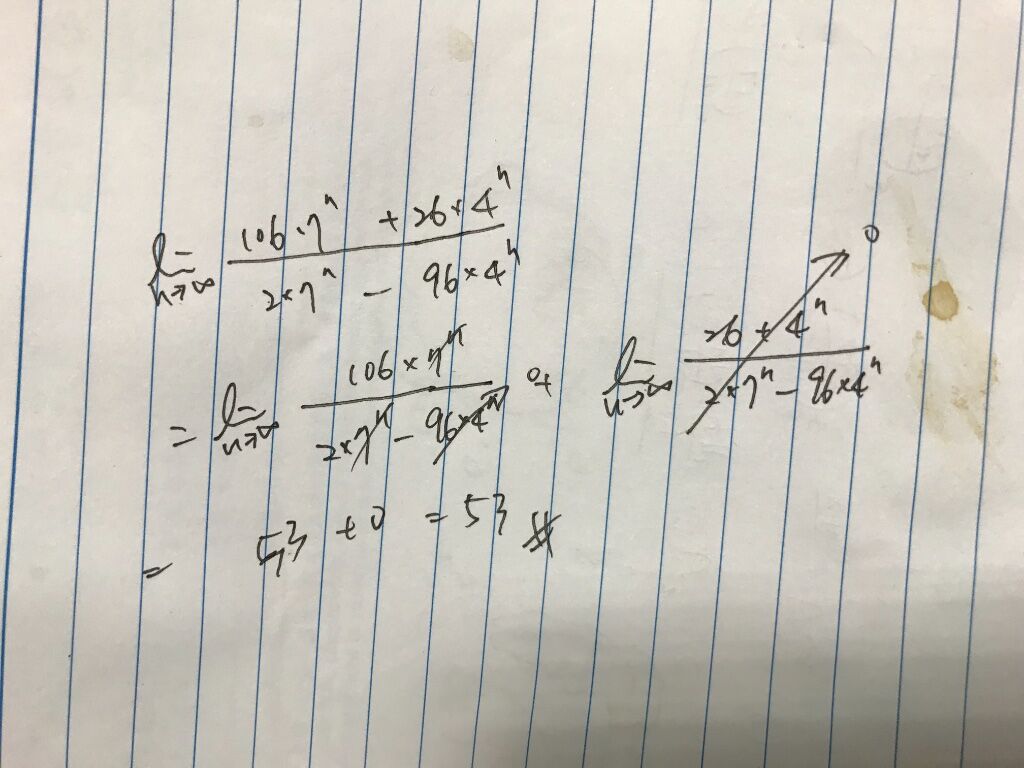 lim n→∞ (106·7ⁿ + 26×4ⁿ) / (2×7ⁿ − 96×4ⁿ)
= lim n→∞ (106×7ⁿ) / (2×7ⁿ − 96×4ⁿ) 0 + lim n→∞ (26×4ⁿ) / (2×7ⁿ − 96×4ⁿ) 0
= 53 + 0 = 53 #